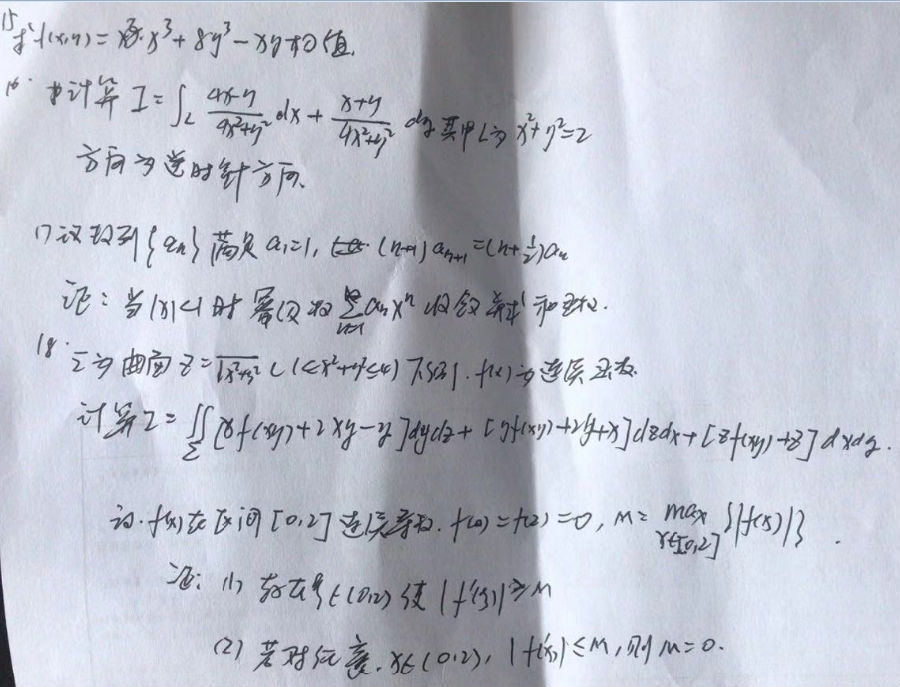 15 求f(x,y)=x³+8y³-xy极值.
16. 计算I=∫_L (4x-y)/(4x²+y²) dx + (x+y)/(4x²+y²) dy 其中L为x²+y²=2
方向为逆时针方向.
17 设数列{an}满足a₁=1, (n+1)a_{n+1}=(n+½)an
证：当|x|<1时幂级数∑_{n=1}^∞ anxⁿ收敛并求和函数.
18. Σ为曲面Z=√(x²+y²) (1≤x²+y²≤4)下侧. f(x)为连续函数.
计算I=∬_Σ [xf(xy)+2xy-y]dydz+[yf(xy)+2y+x]dzdx+[zf(xy)+z]dxdy.
设.f(x)在区间[0,2]连续导数. f(0)=f(2)=0, M=max_{x∈[0,2]}{|f(x)|}.
证: (1) 存在ξ∈(0,2)使|f'(ξ)|≥M
(2) 若对任意.x∈(0,2), |f'(x)|≤M,则M=0.